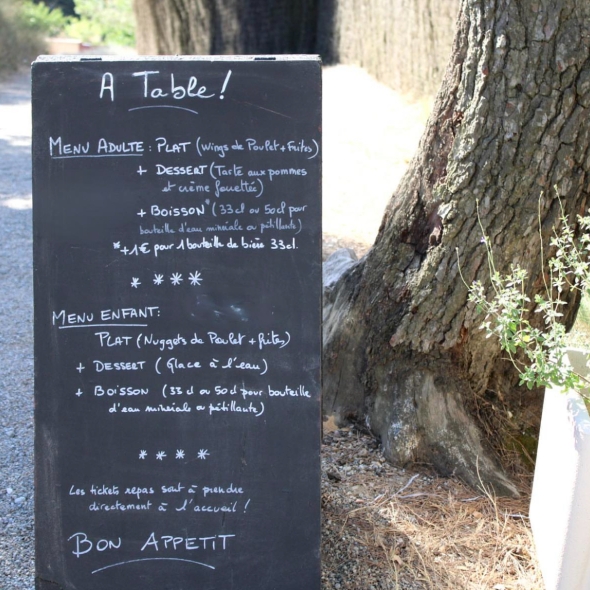 A Table!
MENU ADULTE: PLAT (Wings de Poulet + Frites)
+ DESSERT (Tarte aux pommes
et crème fouettée)
+ BOISSON* (33cl ou 50cl pour
bouteille d'eau minérale ou pétillante)
*+1€ pour 1 bouteille de bière 33cl.
* * * *
MENU ENFANT:
PLAT (Nuggets de Poulet + frites)
+ DESSERT (Glace à l'eau)
+ BOISSON (33cl ou 50cl pour bouteille
d'eau minérale ou pétillante)
* * * *
Les tickets repas sont à prendre
directement à l'accueil!
BON APPETIT